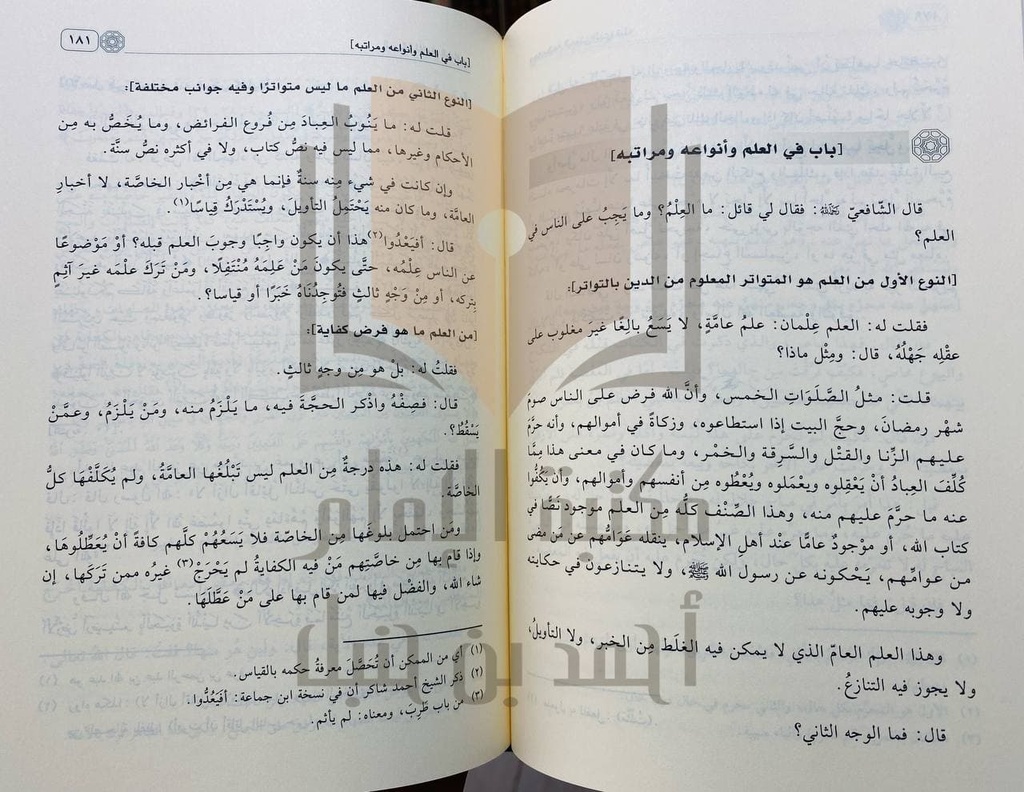 [باب في العلم وأنواعه ومراتبه]
قال الشَّافعيّ ﵀: فقال لي قائل: ما العِلْمُ؟ وما يَجِبُ على الناس في
العلم؟
[النوع الأول من العلم هو المتواتر المعلوم من الدين بالتواتر]:
فقلت له: العلم عِلْمان: علمُ عامَّةٍ، لا يَسَعُ بالِغًا غيرَ مغلوب على
عقلِه جَهْلُهُ، قال: ومِثْل ماذا؟
قلت: مثلُ الصَّلَوَاتِ الخمس، وأنَّ الله فرض على الناس صومَ
شهْر رمضانَ، وحجَّ البيت إذا استطاعوه، وزكاةً في أموالهم، وأنه حرَّمَ
عليهم الزِّنا والقتْل والسَّرِقة والخمْر، وما كان في معنى هذا مِمَّا
كُلِّفَ العِبادُ أنْ يَعْقِلوه ويعْملوه ويُعْطُوه مِن أنفسهم وأموالهم، وأن يَكُفُّوا
عنه ما حرَّمَ عليهم منه، وهذا الصِّنْف كلُّه مِن العلم موجود نَصًّا في
كتاب الله، أو موْجودٌ عامًّا عنْد أهلِ الإسلام، ينقله عَوَامُّهم عن مَن مضى
من عوامِّهم، يَحْكونه عن رسول الله ﷺ، ولا يتنازعون في حكايته
ولا وجوبه عليهم.
وهذا العلم العامّ الذي لا يمكن فيه الغلَط مِن الخبر، ولا التأويلُ،
ولا يجوز فيه التنازعُ.
قال: فما الوجه الثاني؟
[باب في العلم وأنواعه ومراتبه]
١٨١
[النوع الثاني من العلم ما ليس متواترًا وفيه جوانب مختلفة]:
قلت له: ما يَنُوبُ العِبادَ مِن فُروع الفرائض، وما يُخَصُّ به مِن
الأحكام وغيرها، مما ليس فيه نصُّ كتاب، ولا في أكثره نصُّ سنَّة.
وإن كانت في شيءٍ مِنه سنةٌ فإنما هي مِن أخْبار الخاصَّة، لا أخبارِ
العامَّة، وما كان منه يَحْتَمِلُ التأويلَ، ويُسْتَدْرَكُ قِياسًا(١).
قال: أفيَعْدُوا(٢)هذا أن يكون واجِبًا وجوبَ العلم قبله؟ أوْ مَوْضوعًا
عن الناس عِلْمُه، حتَّى يكونَ مَنْ عَلِمَهُ مُنْتَفِلًا، ومَنْ تَرَكَ علْمَه غيرَ آثِمٍ
بِتركه، أو مِنْ وَجْهٍ ثالثٍ فتُوجِدُنَاهُ خَبَرًا أو قياسا؟.
[من العلم ما هو فرض كفاية]:
فقلتُ له: بلْ هو مِن وجهٍ ثالثٍ.
قال: فصِفْهُ واذْكر الحجَّةَ فيه، ما يَلْزَمُ منه، ومَنْ يَلْزَمُ، وعمَّنْ
يَسْقُطُ؟.
فقلت له: هذه درجةٌ مِن العلم ليس تَبْلُغُها العامَّةُ، ولم يُكَلَّفْهَا كلُّ
الخاصَّة.
ومَن احتمل بلوغَها مِن الخاصَّة فلا يَسَعُهُمْ كلَّهم كافةً أنْ يُعَطِّلُوهَا،
وإذا قام بها مِن خاصَّتِهم مَنْ فيه الكفايةُ لم يَحْرَجْ(٣) غيرُه ممن تَرَكَها، إن
شاء الله، والفضْل فيها لمن قام بها على مَنْ عَطَّلَهَا.
(١) أي من الممكن أن تُحَصَّلَ معرفةُ حكمه بالقياس.
(٢) ذكر الشيخ أحمد شاكر أن في نسخة ابن جماعة: أفيَعُدُّوا.
(٣) من باب طَرِبَ، ومعناه: لم يأثم.
مكتبة الإمام
أحمد بن حنبل